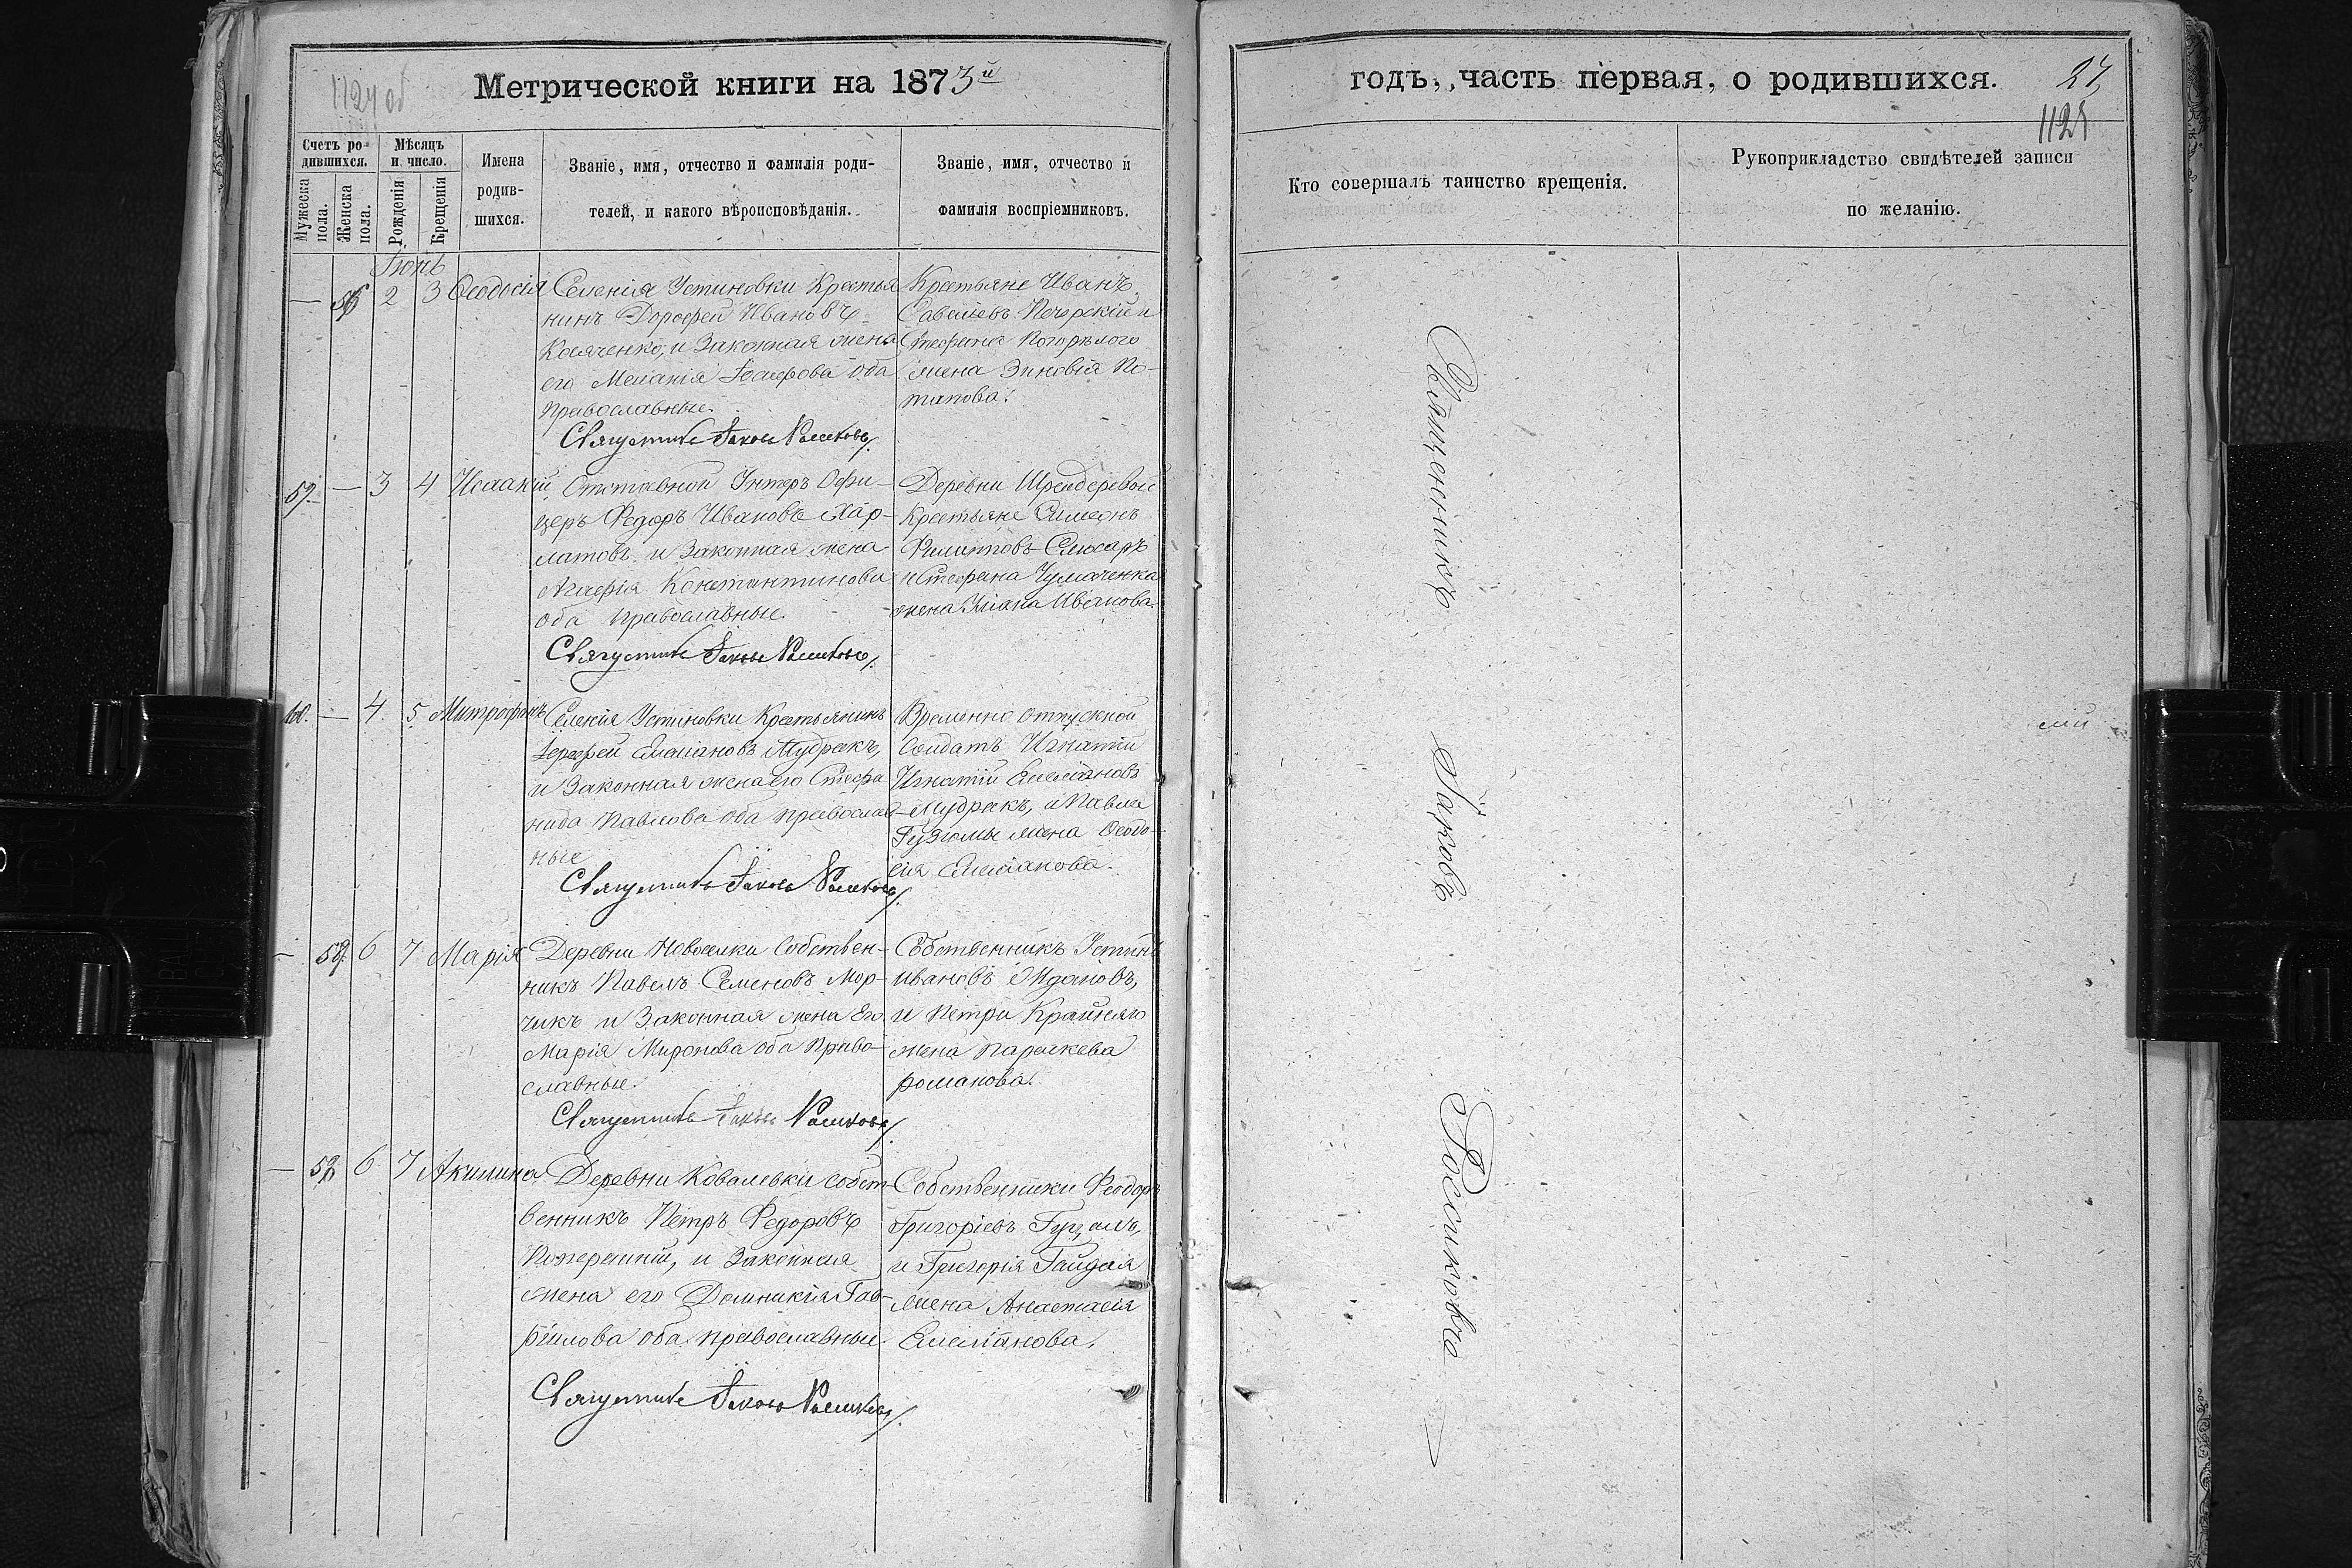 1124 об
Метрической книги на 1873й
годъ, часть первая, о родившихся.
27
1125
Счетъ ро-
дившихся.
Мужеска пола.
Женска пола.
Мѣсяцъ
и число.
Рожденія
Крещенія
Имена
родив-
шихся.
Званіе, имя, отчество и фамилія роди-
телей, и какого вѣроисповѣданія.
Званіе, имя, отчество и
фамилія воспріемниковъ.
Кто совершалъ таинство крещенія.
Рукоприкладство свидѣтелей записи
по желанію.
Іюнь
— 2 3 Ѳеодосія
Селенія Устиновки Крестья
нинъ Дорофей Ивановъ
Косяченко, и Законная жена
его Меланія оба
православные.
Священникъ Іаковъ
Крестьяне Иванъ
Савелievъ Печорскій и
Стефана Погорѣлого
жена Зиновія По-
тапова.
59. — 3 4 Исаакій
Отставной Унтеръ Офи-
церъ Федоръ Ивановъ Хар-
ламовъ и Законная жена
Агафія Константинова
оба православные.
Священникъ Іаковъ
Деревни
Крестьяне Симеонъ
Филипповъ Слюсаръ
и Стефана Чумаченка
жена Иванова.
60. — 4 5 Митрофанъ
Селенія Устиновки Крестьянинъ
Емеліановъ Мудракъ,
и Законная жена его Стефа
нида Павлова оба православ-
ные
Священникъ Іаковъ
Временно отпускной
Солдатъ Игнатій
Игнатій Емеліановъ
Мудракъ, и Павла
жена Ѳеодо-
сія Емеліанова.
— 6 7 Марія
Деревни Новоселки Собствен-
никъ Павелъ Семеновъ Мор-
чикъ и Законная жена Его
Марія Миронова оба Право-
славные.
Священникъ Іаковъ
Собственникъ Устинъ
Ивановъ Ждановъ,
и Петра Крайняго
жена Параскева
романова.
— 6 7 Акилина
Деревни Ковалевки собст-
венникъ Петръ Федоровъ
и Законная
жена его Домникія Гав-
ріилова оба православные.
Священникъ Іаковъ
Собственники Феодоръ
Григоріевъ Гуцалъ,
и Григорія Гайдая
жена Анастасія
Емеліанова.
Священникъ Іаковъ